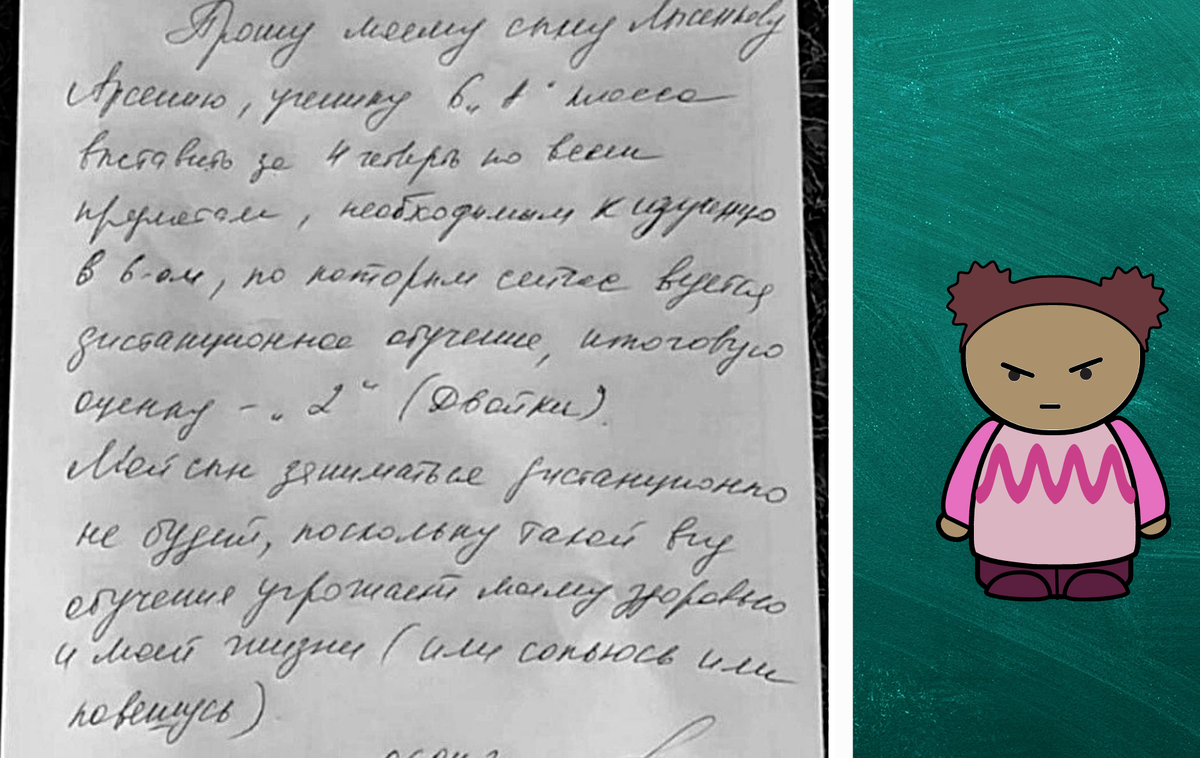 Прошу моему сыну
Арсению, ученику 6 „А“ класса
выставить за 4 четверть по всем
предметам, необходимым к изучению
в 6-ом, по которым сейчас ведется
дистанционное обучение, итоговую
оценку – „2“ (Двойки).
Мой сын заниматься дистанционно
не будет, поскольку такой вид
обучения угрожает моему здоровью
и моей жизни (или сопьюсь или
повешусь)